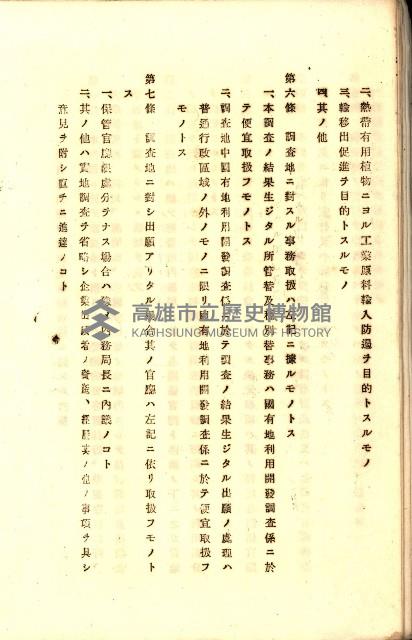 二、熱帶有用植物ニヨル工業原料輸入防遏ヲ目的トスルモノ
三、輸移出促進ヲ目的トスルモノ
四、其ノ他
第六條 調査地ニ對スル事務取扱ハ左記ニ據ルモノトス
一、本調査ノ結果生ジタル所管替及種別替事務ハ國有地利用開發調査係ニ於
テ便宜取扱フモノトス
二、調査地中國有地利用開發調査係ニ於テ調査ノ結果生ジタル出願ノ處理ハ
普通行政區域ノ外ノモノニ限リ國有地利用開發調査係ニ於テ便宜取扱フ
モノトス
第七條 調査地ニ對シ出願アリタル場合其ノ官廳ハ左記ニ依リ取扱フモノト
ス
一、保管官廳 處分ヲナス場合ハ 務局長ニ內議ノコト
二、其ノ他ハ實地調査ヲ省略シ企業 者ノ資 、經歷其ノ他ノ事項ヲ具シ
意見ヲ附シ直チニ進達ノコト
高雄市立歷史博物館
KAOHSIUNG MUSEUM OF HISTORY